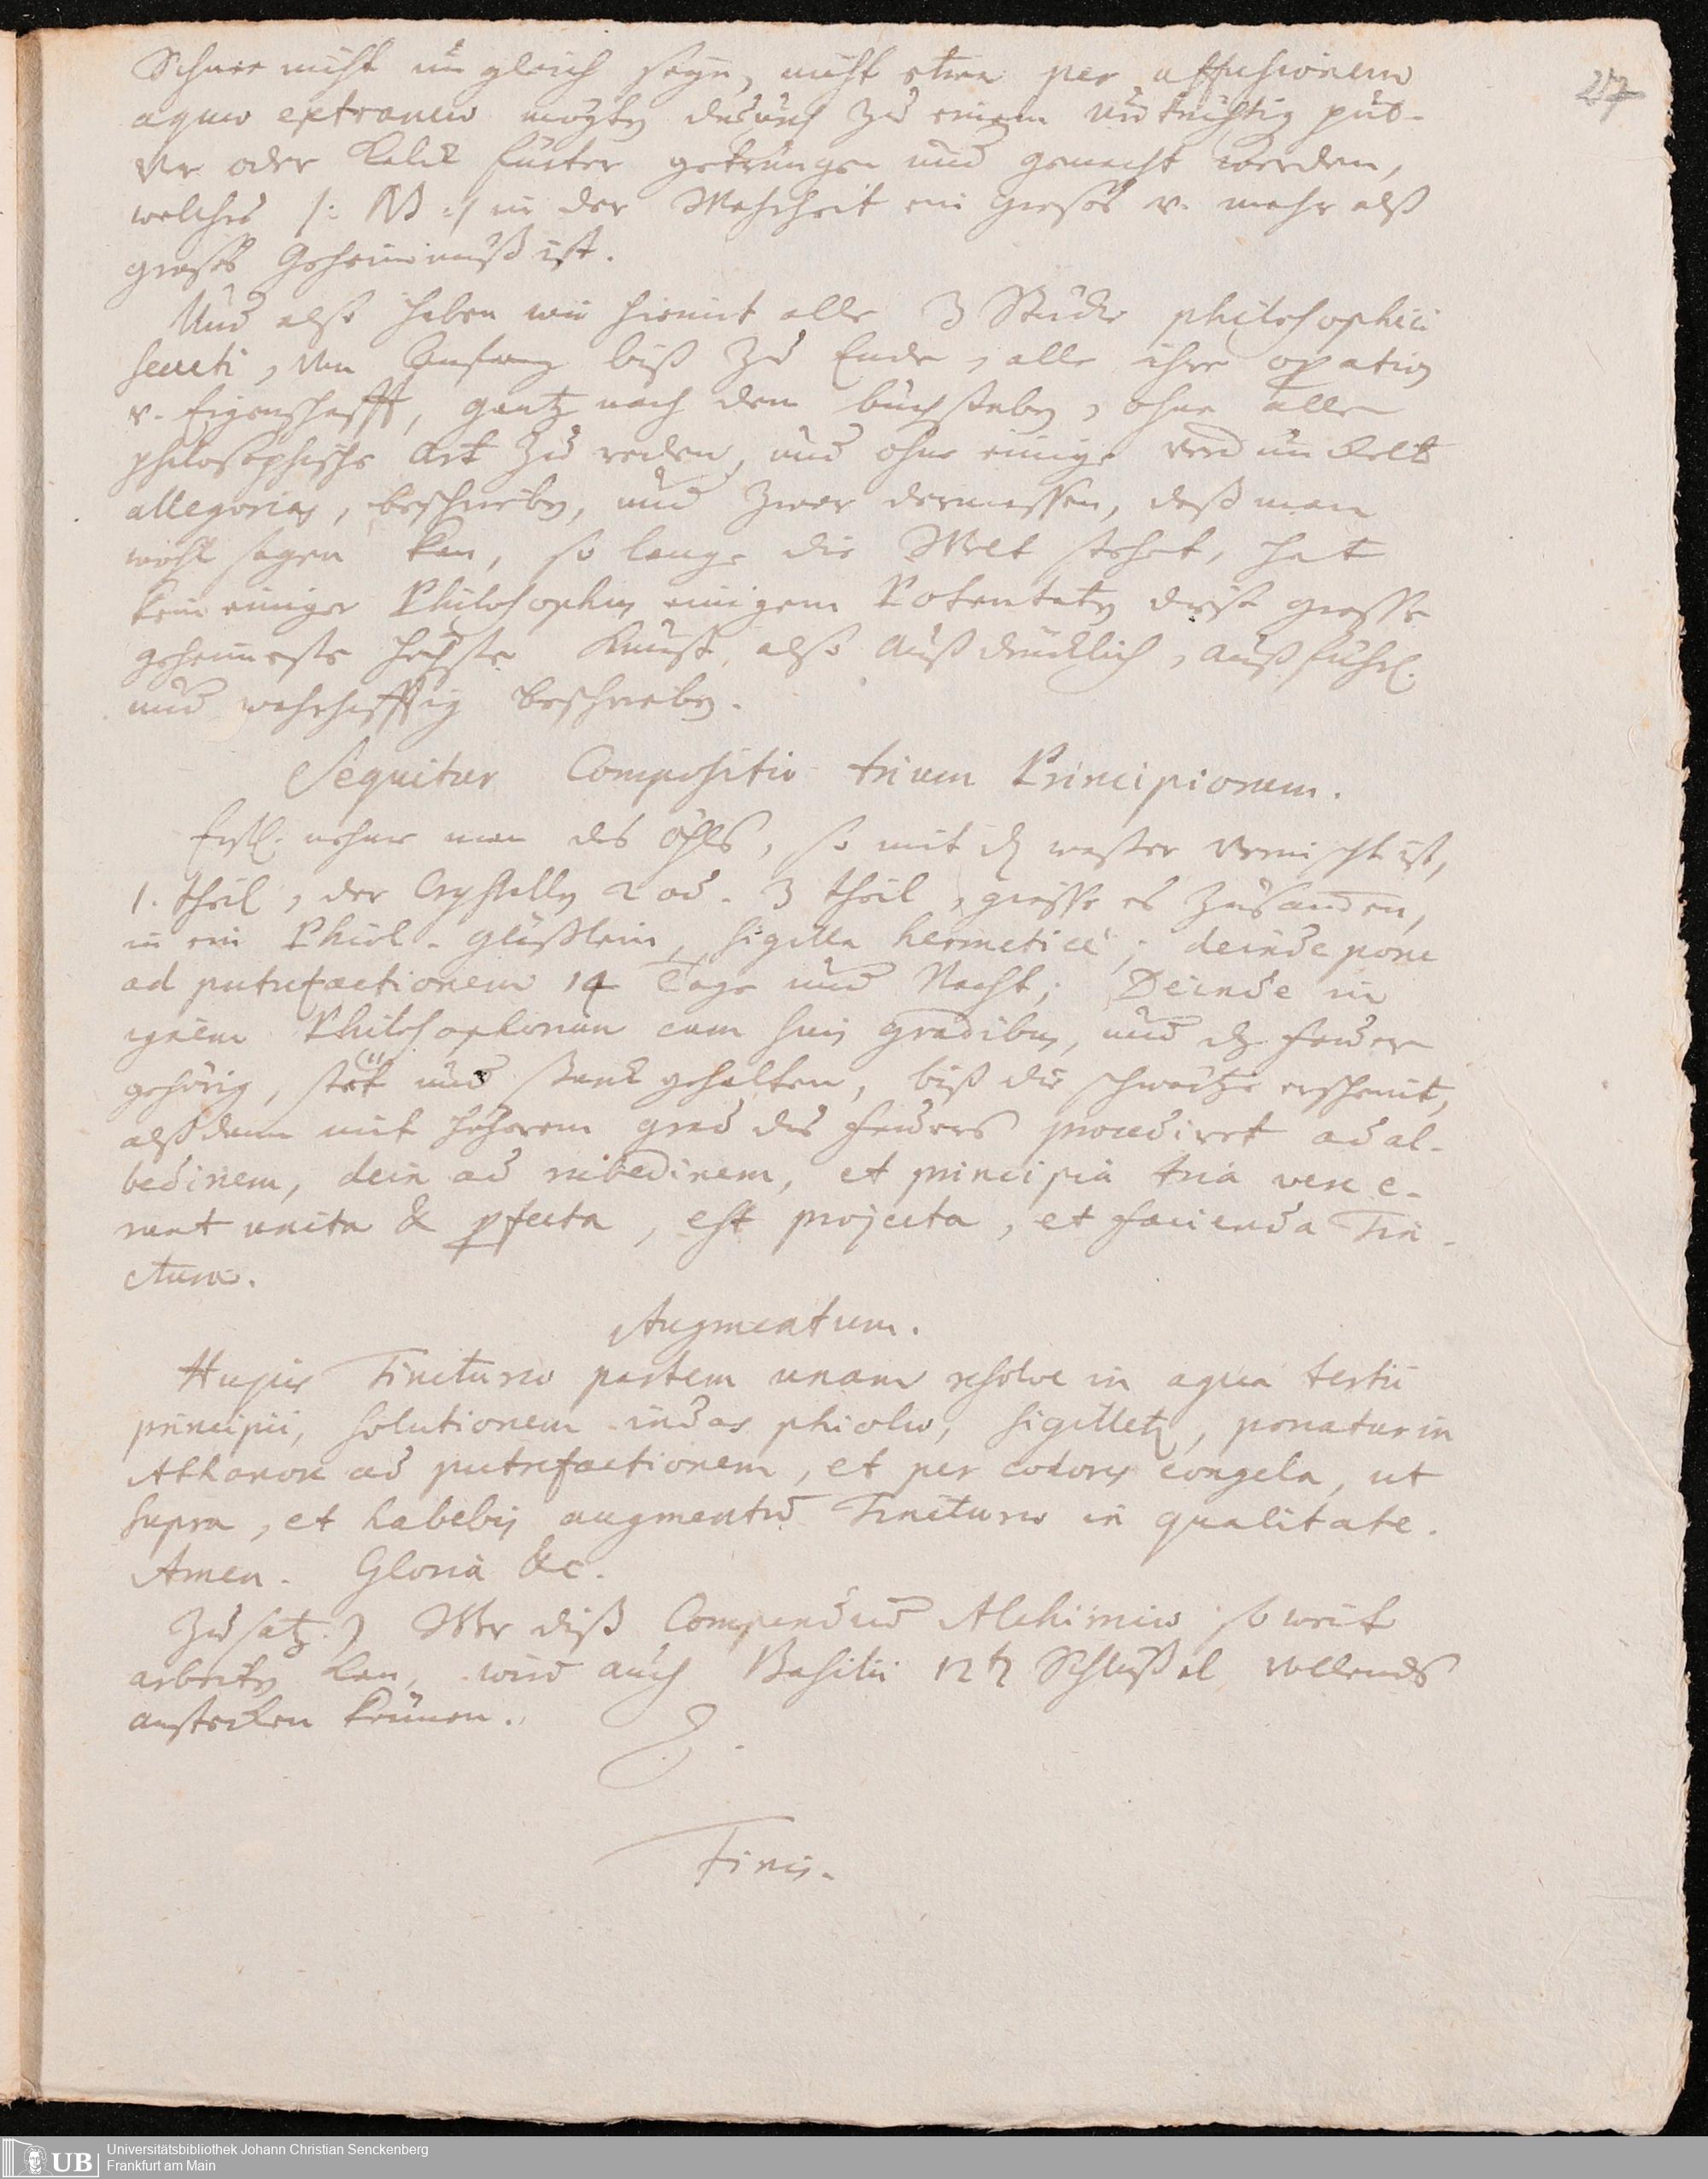 27
Schnee nicht ungleich seyn, nicht etwa per affusionem
aquae extraneae mögte dadurch zu einem untüchtig pul-
ver oder Kalck getrungen und gemacht werden,
welches /: NB :/ in der Wahrheit ein grosses v. mehr alß
grosses Geheimnuß ist.
Und also haben wir hiemit alle 3 Stücke philosophici
secreti, von Anfang biß zu Ende, alle ihre opation
v. Eigenschafft, gantz nach dem buchstaben, ohne alle
philosophische Art zu reden, und ohne einige verdunckelte
allegorias, beschrieben, und zwar dermassen, daß man
wohl sagen kan, so lange die Welt stehet, hat
kein einiger Philosophus einigem Potentaten diese grosse
geheimeste höchste Kunst, also außdrücklich, außführl.
und wahrhafftig beschrieben.
Sequitur Compositio trium Principiorum.
Erstl. nehme man des öhls, so mit dem wasser vermischt ist,
1. theil, der Crystallen 2 od. 3 theil, giesse es zusammen,
in ein Phiol-gläßlein, sigilla hermeticè; deinde pone
ad putrefactionem 14 Tage und Nacht; Deinde in
ignem Philosophorum cum suis gradibus, und das feuer
gehörig, stät und starck gehalten, biß die schwärtze erscheint,
alßdann mit höherem grad des feuers procediret ad al-
bedinem, dein ad rubedinem, et principia tria vere e-
runt unita & pfecta, est projecta, et facienda Tin-
ctura.
Augmentum.
Hujus Tincturae partem unam resolve in aqua tertii
principii, solutionem indas phiolae, sigilletur, ponatur in
Athanore ad putrefactionem, et per colores congela, ut
supra, et habebis augmentū Tincturae in qualitate.
Amen. Gloria &c.
Zusatz.) Wer diß Compendiū Alchimiae so weit
arbeiten kan, wird auch Basilii 12 Schlüßel vollends
anstecken können.
Finis.
UB
Universitätsbibliothek Johann Christian Senckenberg
Frankfurt am Main